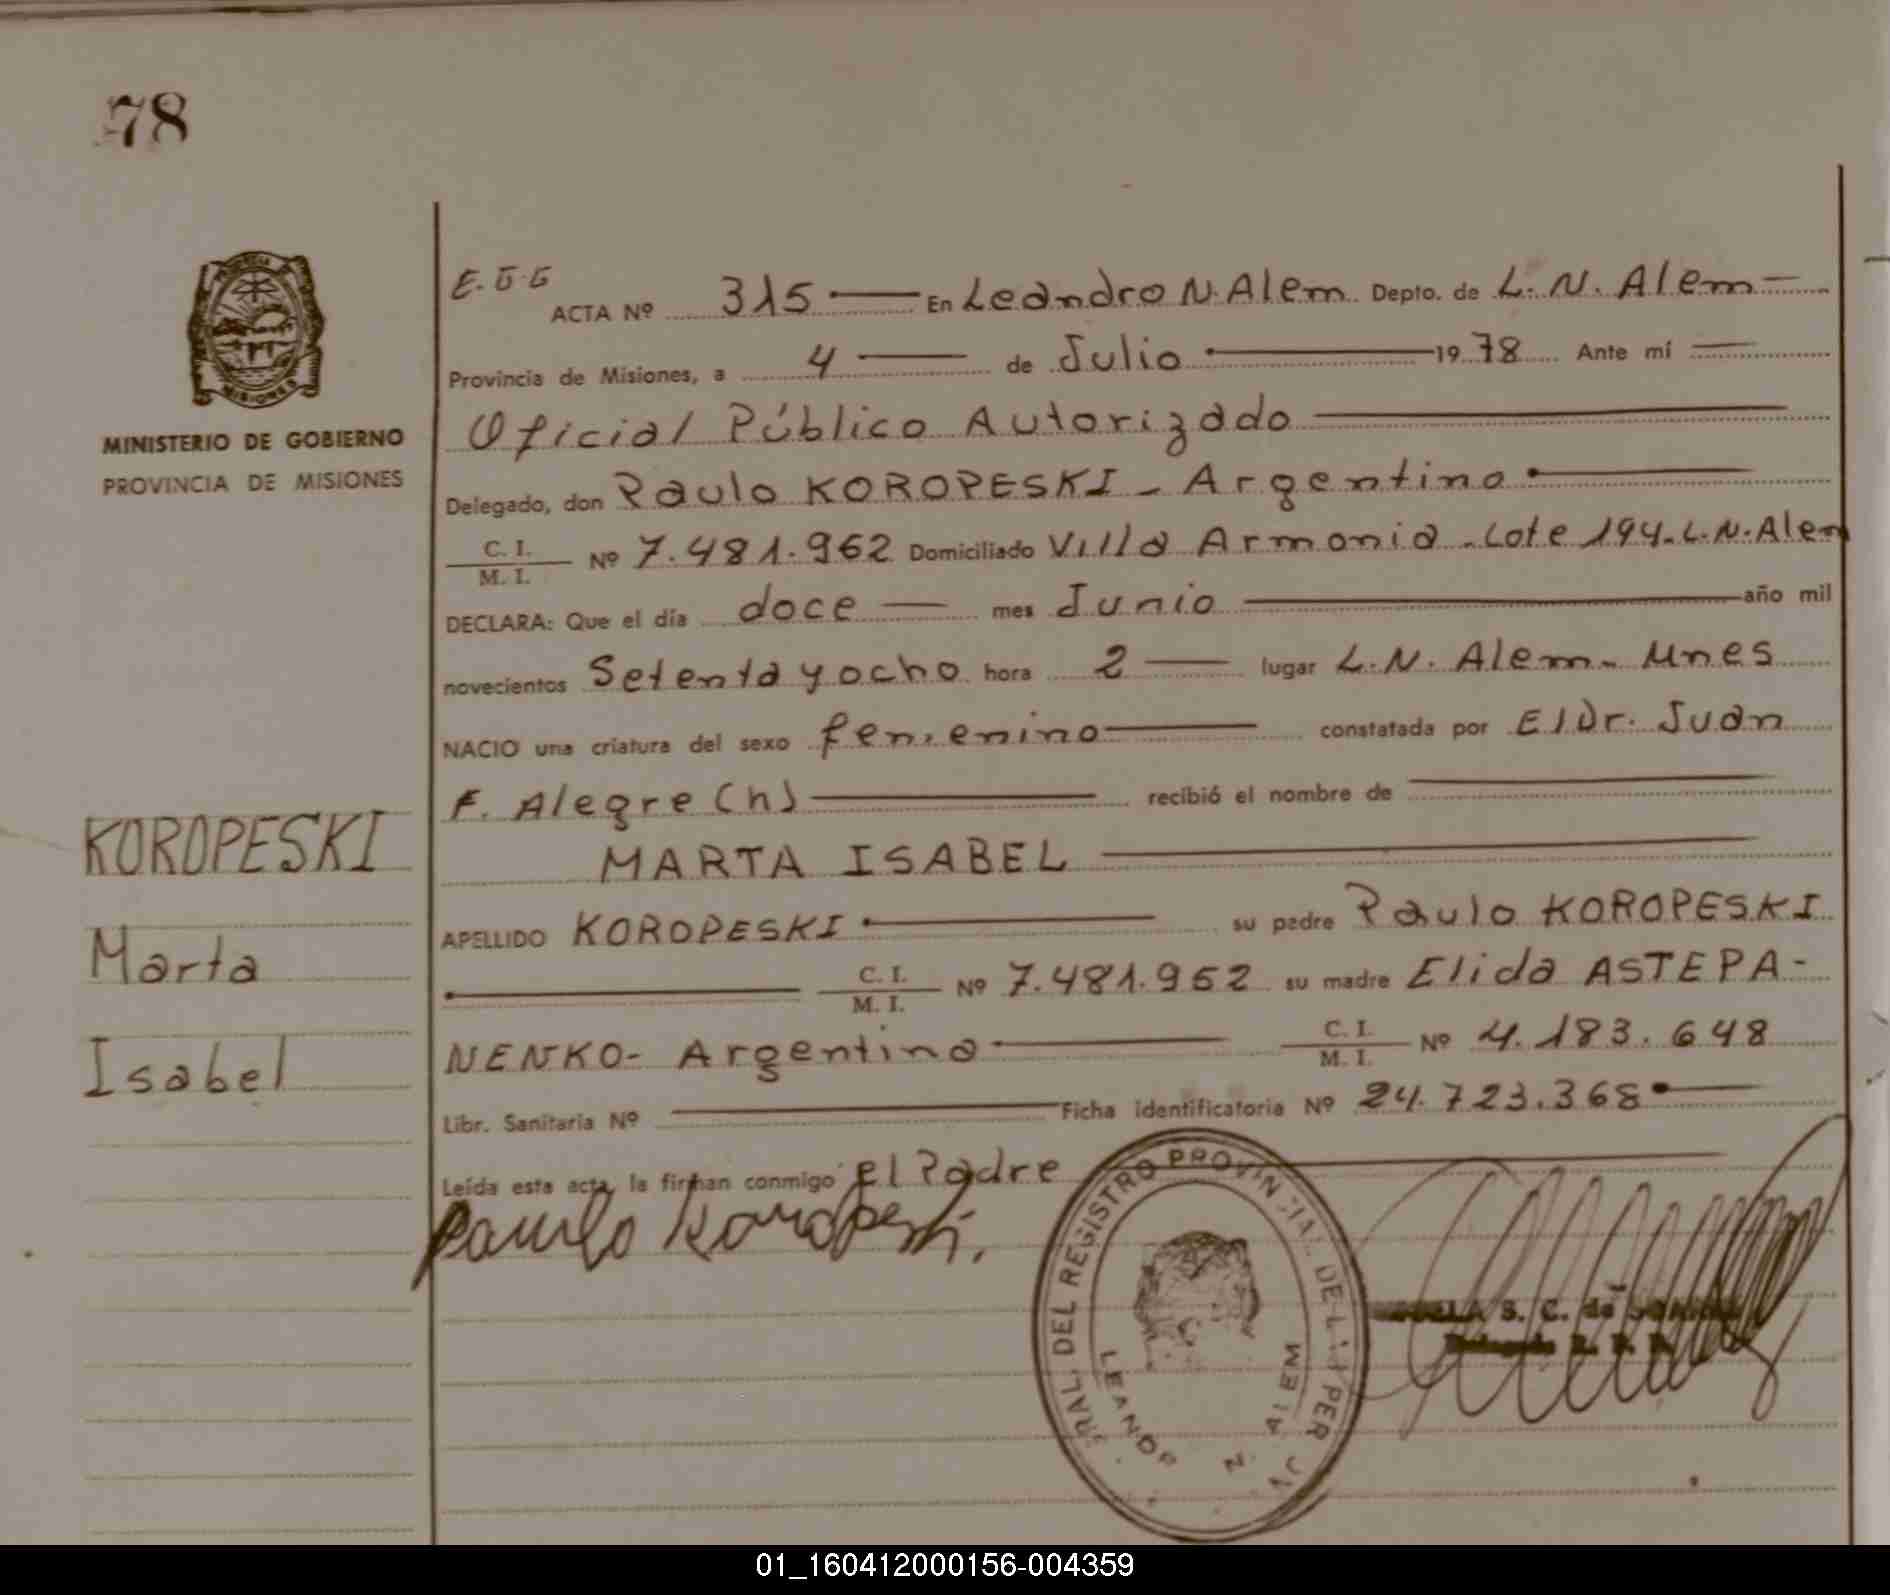 78
MINISTERIO DE GOBIERNO
PROVINCIA DE MISIONES
KOROPESKI
Marta
Isabel
E.G.G
ACTA Nº 315 En Leandro N. Alem Depto. de L. N. Alem
Provincia de Misiones, a 4 de Julio 1978 Ante mí
Oficial Público Autorizado
Delegado, don Paulo KOROPESKI - Argentino
C. I. / M. I. Nº 7.481.962 Domiciliado Villa Armonia - Lote 194-L.N.Alem
DECLARA: Que el día doce mes Junio año mil
novecientos Setenta y ocho hora 2 lugar L.N. Alem - Mnes
NACIO una criatura del sexo femenino constatada por El Dr. Juan
F. Alegre (h) recibió el nombre de
MARTA ISABEL
APELLIDO KOROPESKI su padre Paulo KOROPESKI
C. I. / M. I. Nº 7.481.962 su madre Elida ASTEPA-
NENKO- Argentina C. I. / M. I. Nº 4.183.648
Libr. Sanitaria Nº Ficha identificatoria Nº 24.723.368
Leída esta acta la firman conmigo el Padre
Paulo Koropeski.
DEL REGISTRO PROVINCIAL DE
LEANDR N. ALEM
S. C. de
01_160412000156-004359